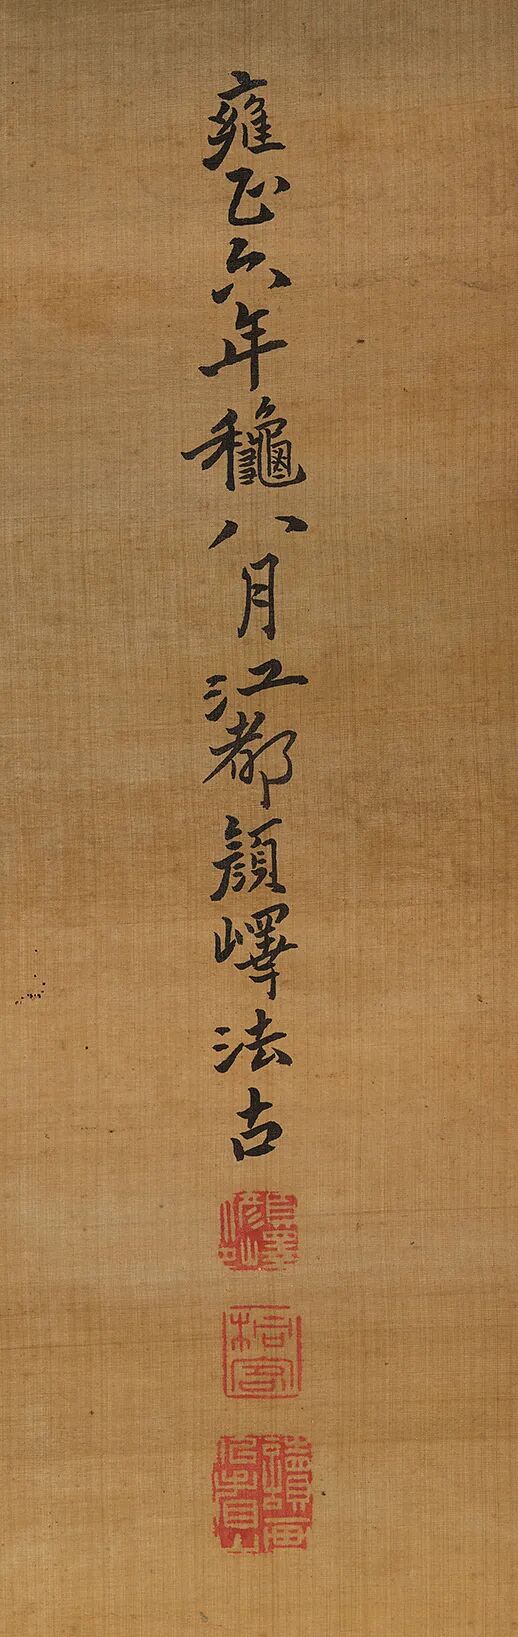 雍正六年龝八月江都顏嶧法古